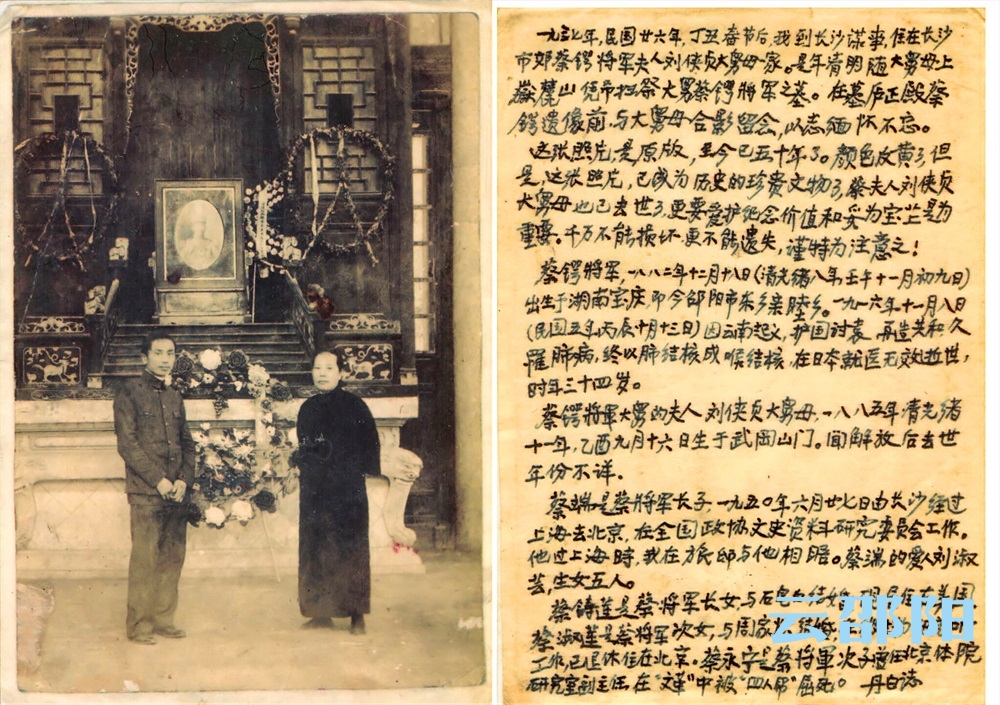 一九三七年,民国廿六年,丁丑春节后,我到长沙谋事,住在长沙
市郊蔡锷将军夫人刘侠贞大舅母家。是年清明随大舅母上
岳麓山凭吊扫祭大舅蔡锷将军之墓。在墓庐正殿蔡
锷遗像前,与大舅母合影留念,以志缅怀不忘。
这张照片,是原版,至今已五十年了。颜色皮黄了,但
是,这张照片,已成为历史的珍贵文物了,蔡夫人刘侠贞
大舅母也已去世了,更要爱护纪念价值和 为宝 是为
重要。千万不能损坏,更不能遗失,谨特为注意之!
蔡锷将军,一八八二年十二月十八日(清光绪八年壬午十一月初九日)
出生于湖南宝庆即今邵阳市东乡亲睦乡。一九一六年十一月八日
(民国五年丙辰十月十三日)因云南起义,护国讨袁,再造共和久
罹肺病,终以肺结核成喉结核,在日本就医无效逝世,
时年三十四岁。
蔡锷将军大舅的夫人刘侠贞大舅母,一八八五年清光绪
十一年,乙酉九月十六日生于武冈山门。闻解放后去世
年份不详。
蔡端是蔡将军长子,一九五〇年六月廿七日由长沙经过
上海去北京,在全国政协文史资料研究委员会工作。
他过上海时,我在旅邸与他相晤。蔡端的爱人刘淑
芸,生女五人。
蔡铸莲是蔡将军长女,与石 结婚 美国
蔡淑莲是蔡将军次女,与周家 结婚
工作,已退休住在北京。蔡永宁是蔡将军次子曾任北京体院
研究室副主任,在"文革"中被"四人帮"屈死。 丹白志
云邵阳